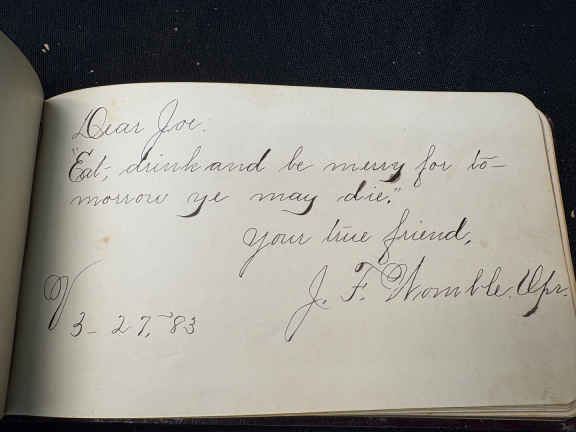 Dear Joe:
"Eat, drink and be merry for to-
morrow ye may die."
Your true friend,
J. F. Womble. Opr.
V
3-27,-83